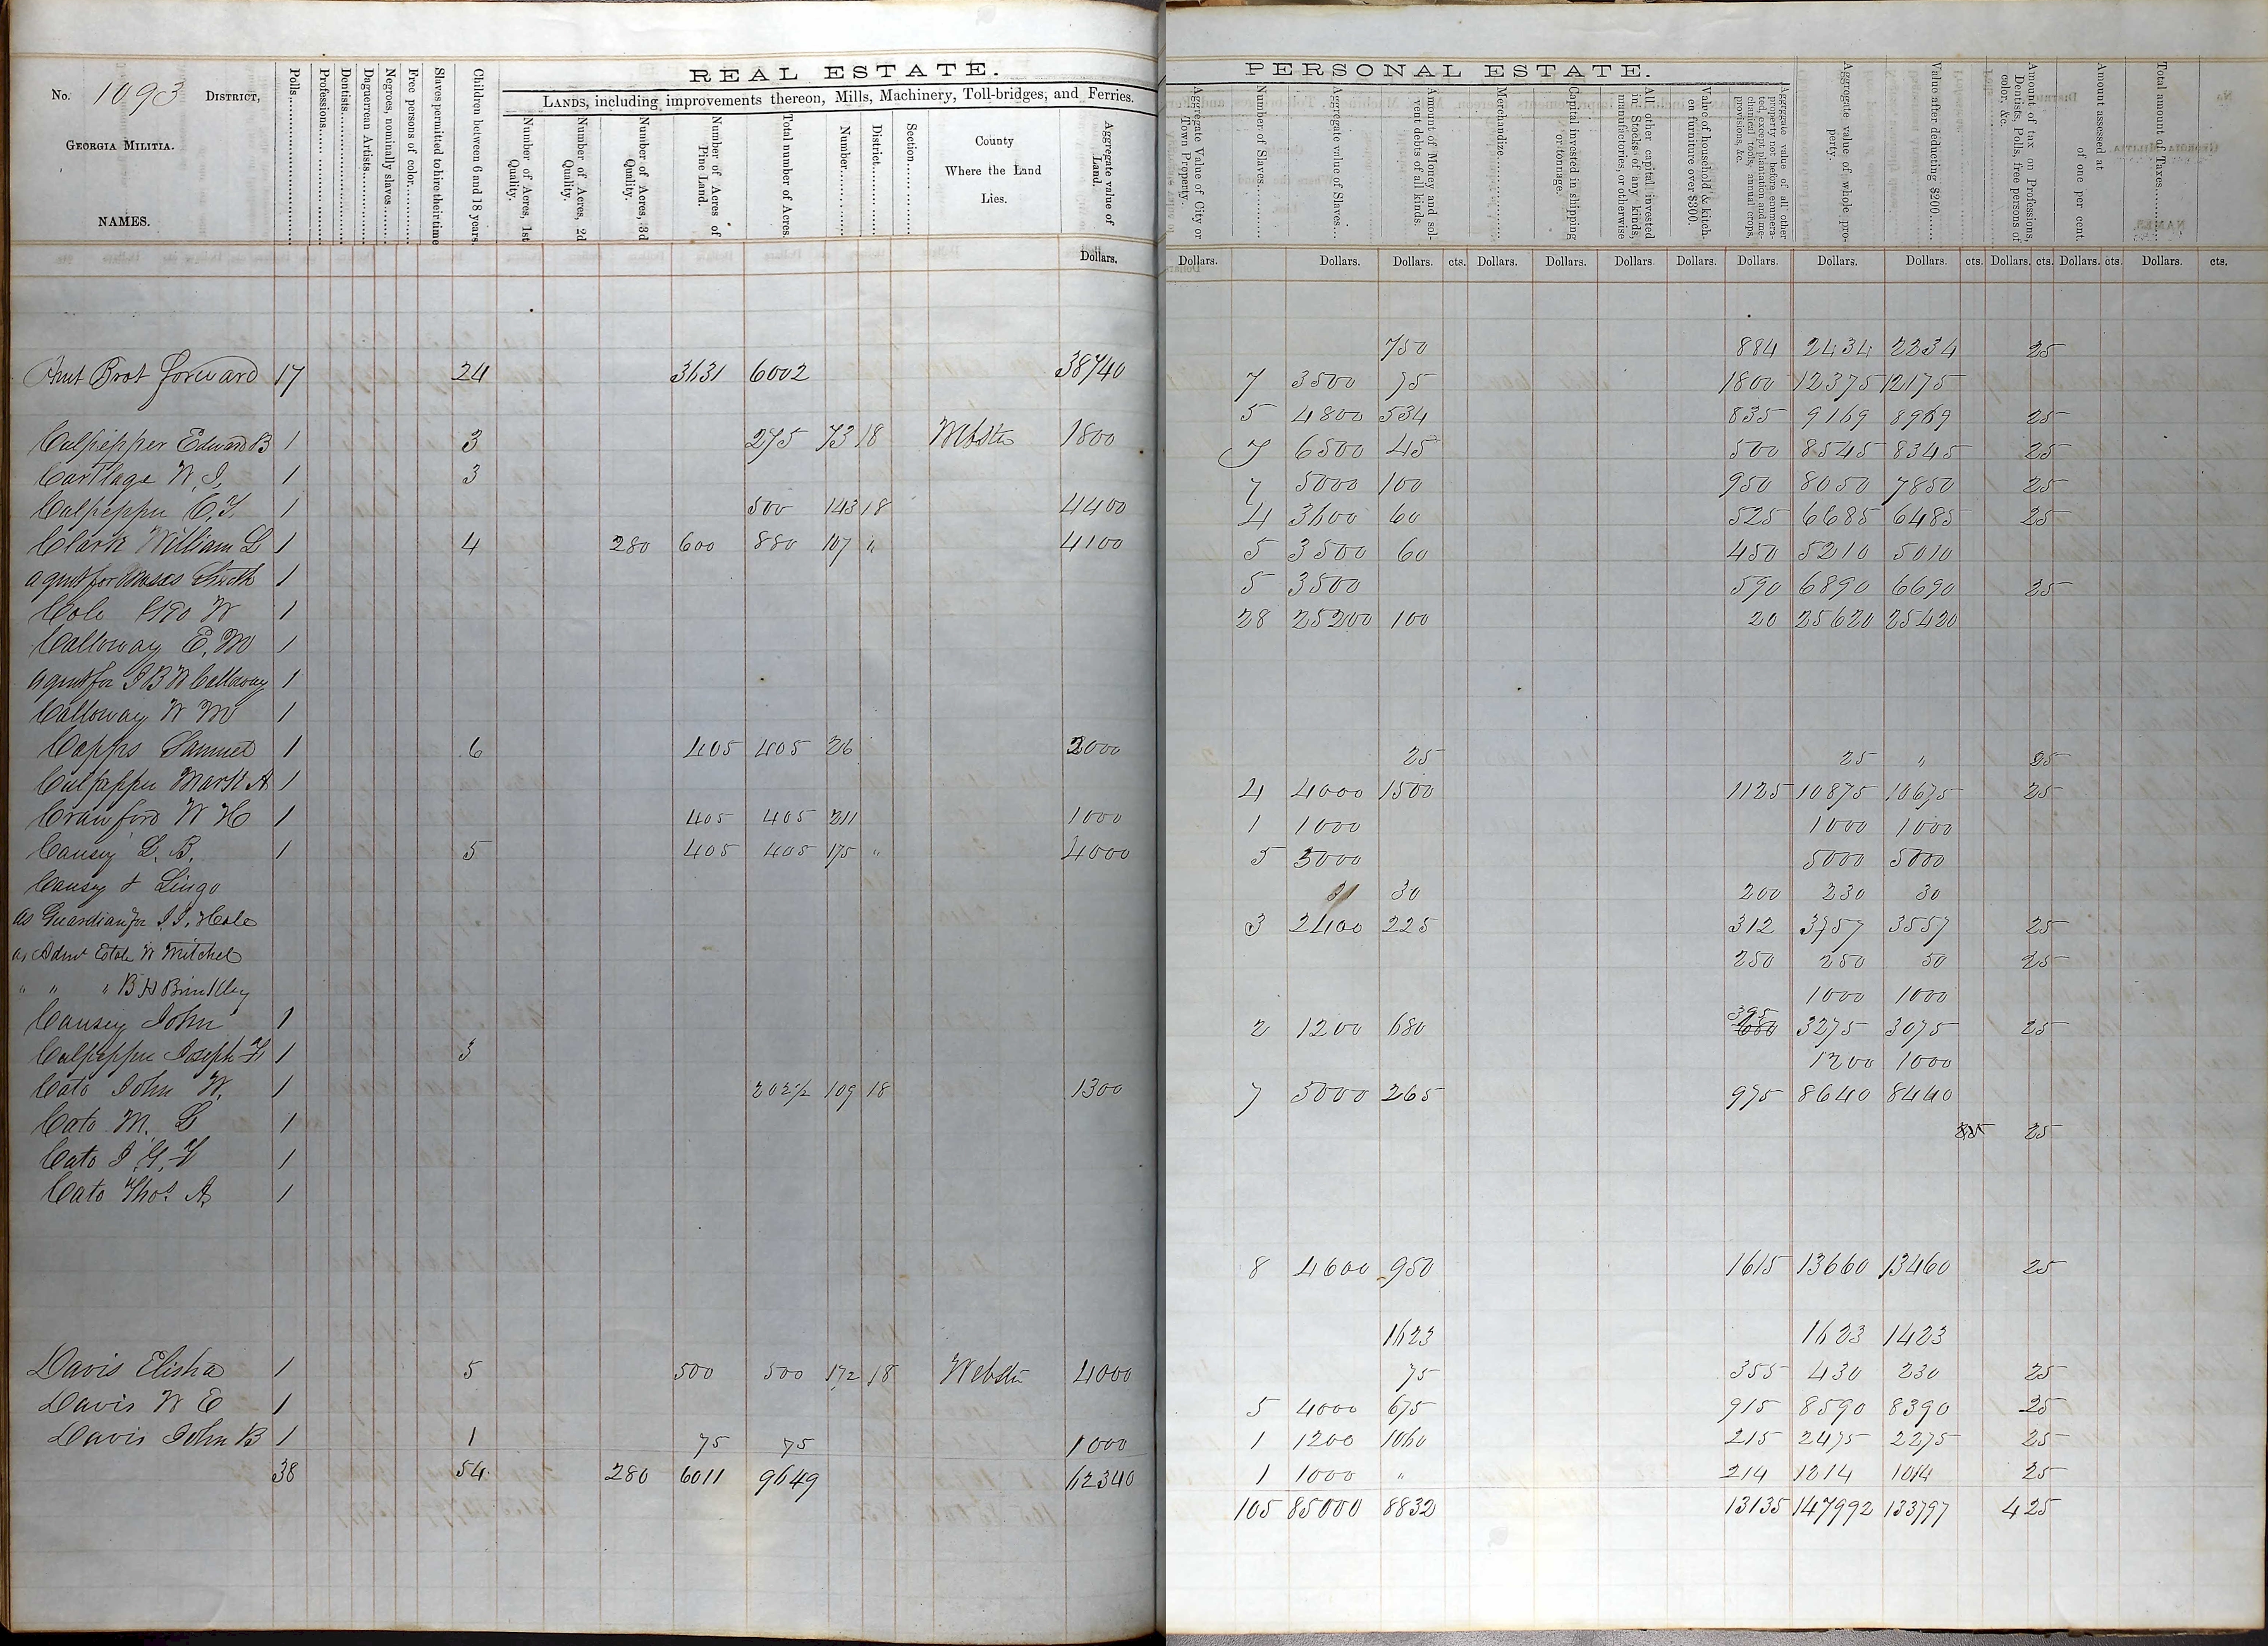 REAL ESTATE.
No. 1093 DISTRICT,
GEORGIA MILITIA.
NAMES.
Polls
Professions
Dentists
Daguerrean Artists
Negroes, nominally slaves
Free persons of color
Slaves permitted to hire their time
Children between 6 and 18 years.
LANDS, including improvements thereon, Mills, Machinery, Toll-bridges, and Ferries.
Number of Acres, 1st Quality.
Number of Acres, 2d Quality.
Number of Acres, 3d Quality.
Number of Acres of Pine Land.
Total number of Acres.
Number
District
Section
County Where the Land Lies.
Aggregate value of Land.
Dollars.
Amt Brot forward 17 24 3631 6002 38740
Culpepper Edward B 1 3 275 73 18 Webster 1800
Cartlage W. J. 1 3
Culpepper C. Y. 1 500 143 18 4400
Clark William L 1 4 280 600 880 107 " 4100
agent for 1
Cole Geo W 1
Calloway E. M 1
agent for J B W Calloway 1
Calloway W M 1
Capps Samuel 1 6 405 405 26 2000
Culpepper Mark A 1
Crawford W H 1 405 405 211 1000
Causey L. B. 1 5 405 405 175 " 4000
Causey & Lingo
as Guardian for J. J. Hole
as Admr Estate W Mitchel
" " " B H Brinkley
Causey John 1
Culpepper Joseph F 1 3
Cato John W. 1 202½ 109 18 1300
Cato M. G 1
Cato J. G. F 1
Cato Thos. A. 1
Davis Elisha 1 5 500 500 172 18 Webster 4000
Davis W E 1
Davis John B 1 1 75 75 1000
38 54 280 6011 9649 62340
PERSONAL ESTATE.
Aggregate Value of City or Town Property.
Number of Slaves
Aggregate value of Slaves
Amount of Money and solvent debts of all kinds.
Merchandize
Capital invested in shipping or tonnage.
All other capital invested in Stocks of any kinds, manufactories, or otherwise
Value of household & kitchen furniture over $300.
Aggregate value of all other property not before enumerated, except plantation and mechanical tools, annual crops, provisions, &c.
Aggregate value of whole property.
Value after deducting $200
Amount of tax on Professions, Dentists, Polls, free persons of color, &c.
Amount assessed at of one per cent.
Total amount of Taxes
Dollars. Dollars. Dollars. cts. Dollars. Dollars. Dollars Dollars. Dollars. Dollars. Dollars. cts. Dollars. cts. Dollars. cts. Dollars. cts.
750 884 2434 2234 25
7 3500 75 1800 12375 12175
5 4800 534 835 9169 8969 25
7 6500 45 500 8545 8345 25
7 5000 100 950 8050 7850 25
4 3600 60 525 6685 6485 25
5 3500 60 450 5210 5010
5 3500 590 6890 6690 25
28 25200 100 20 25620 25420
25 25 " 25
4 4000 1500 1125 10875 10675 25
1 1000 1000 1000
5 5000 5000 5000
30 200 230 30
3 2400 225 312 3757 3557 25
250 250 50 25
1000 1000
395
2 1200 680 680 3275 3075 25
1200 1000
7 5000 265 975 8640 8440
25
8 4600 950 1615 13660 13460 25
1623 1623 1423
75 355 430 230 25
5 4000 675 915 8590 8390 25
1 1200 1060 215 2475 2275 25
1 1000 " 214 1214 1014 25
105 85000 8832 13135 147992 133797 4 25